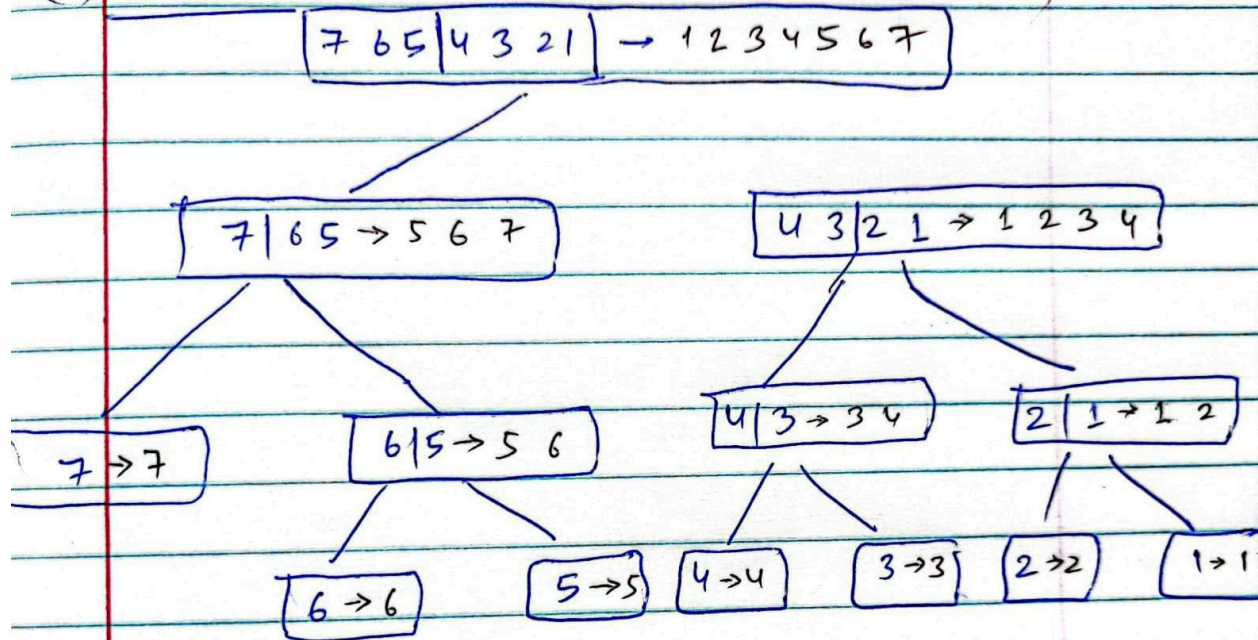 7 6 5 | 4 3 2 1 | → 1 2 3 4 5 6 7
7 | 6 5 → 5 6 7
4 3 | 2 1 → 1 2 3 4
7 → 7
6 | 5 → 5 6
4 | 3 → 3 4
2 | 1 → 1 2
6 → 6
5 → 5
4 → 4
3 → 3
2 → 2
1 → 1